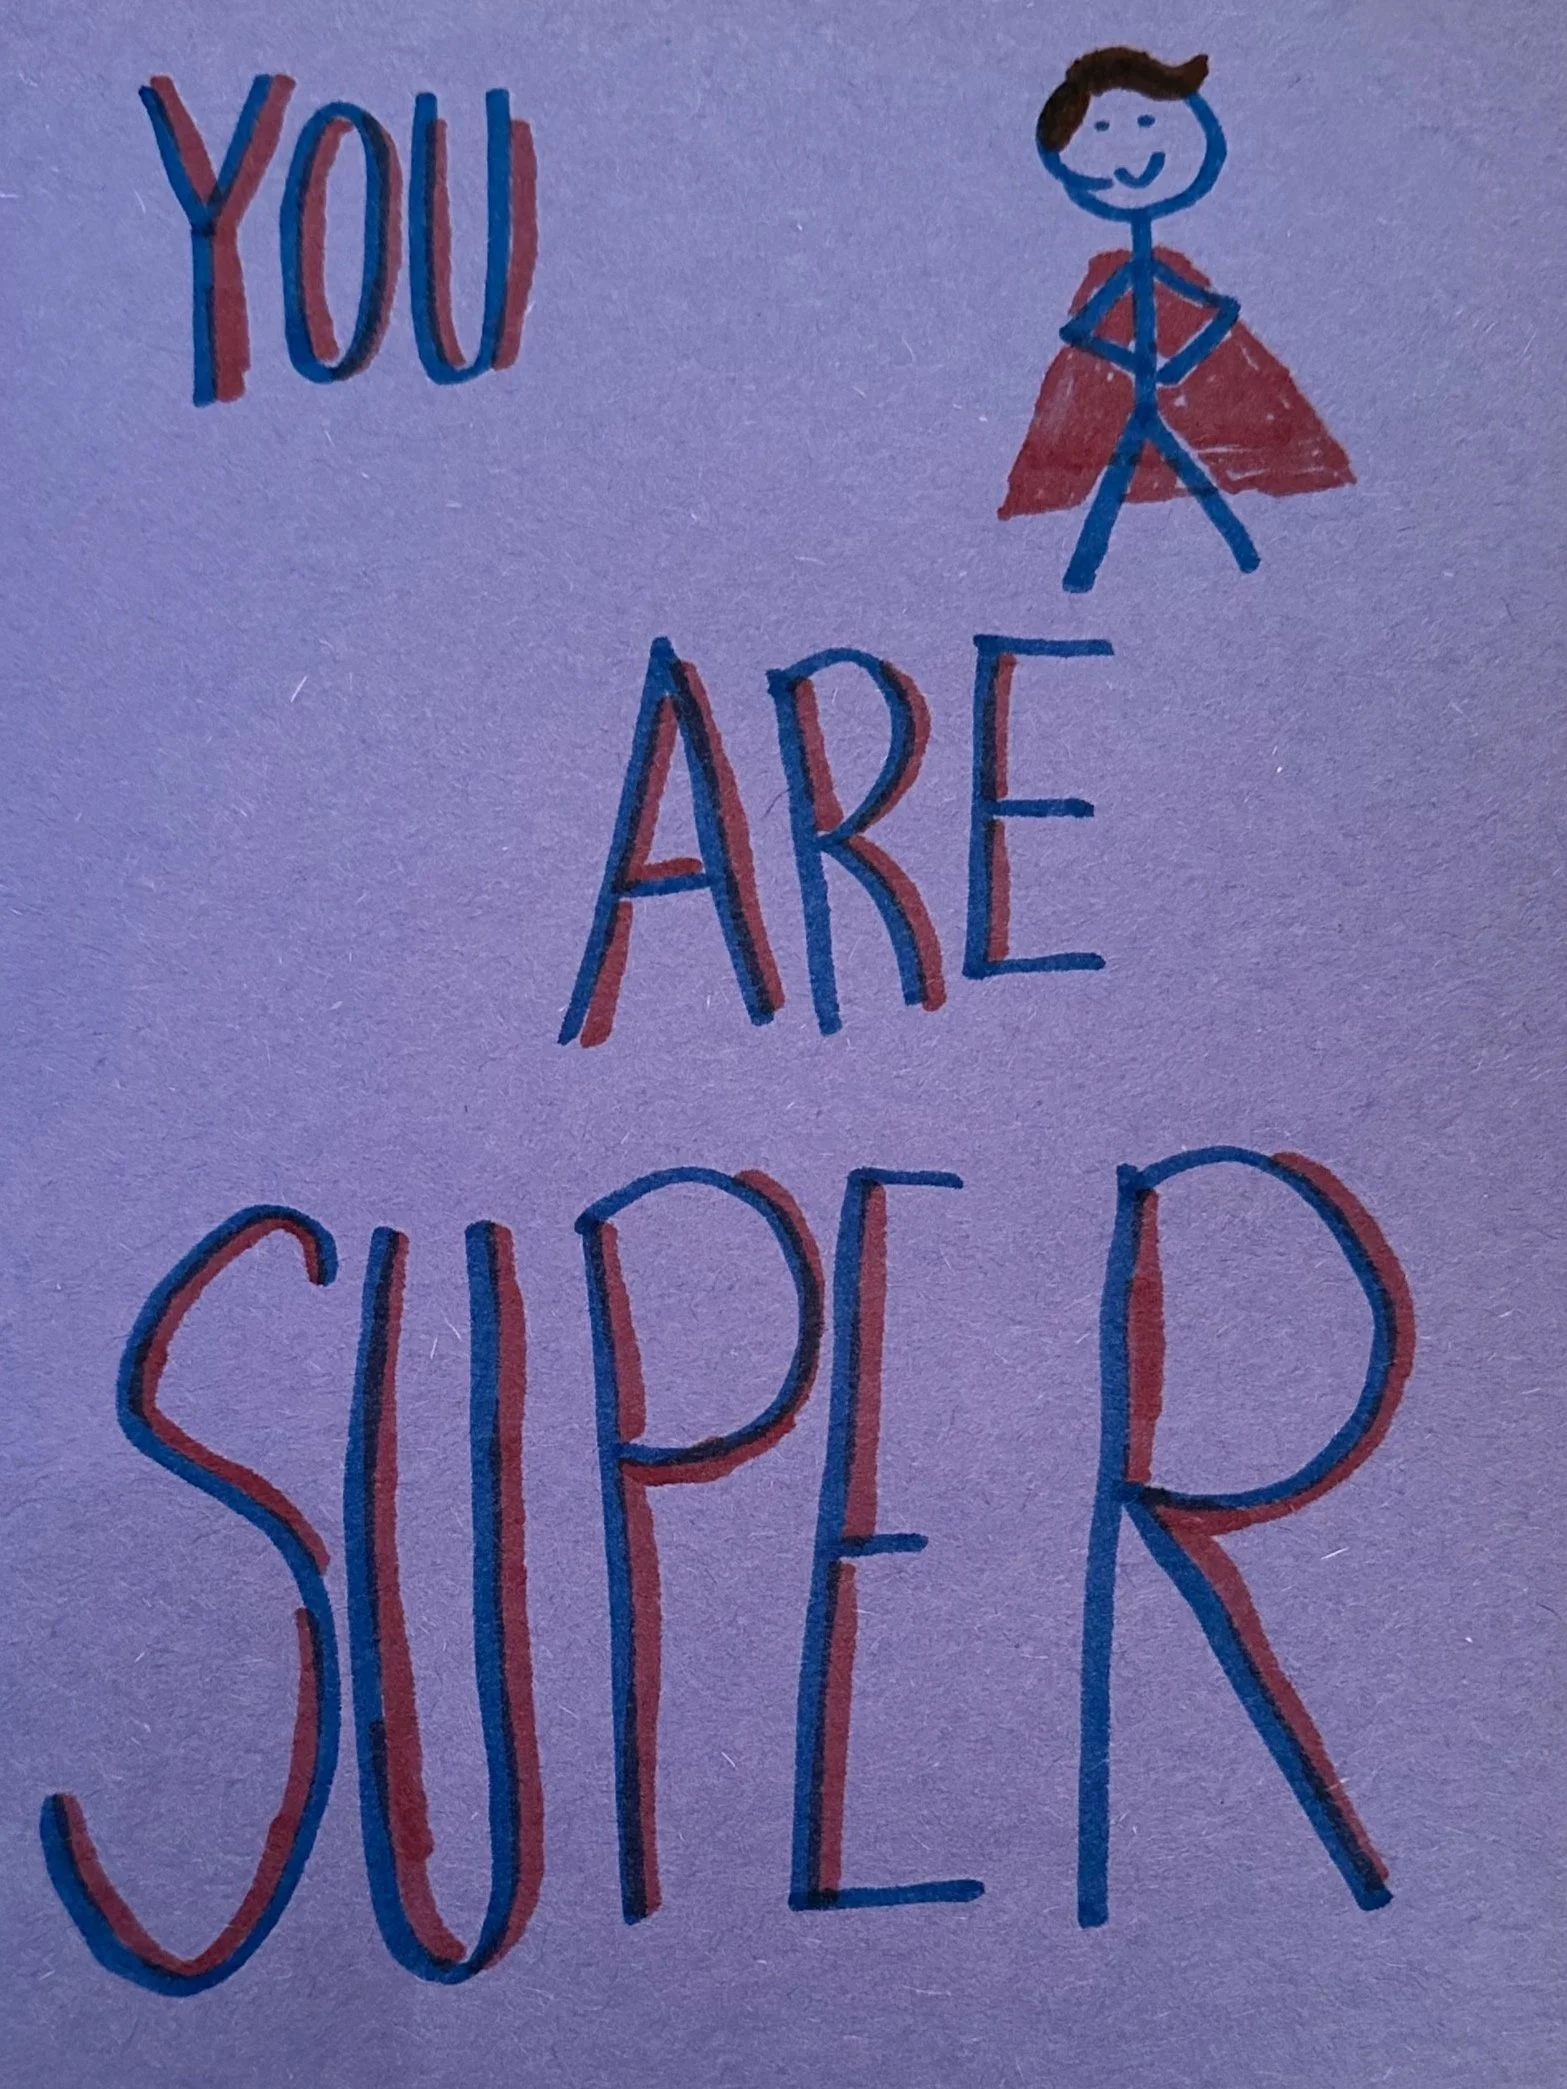 YOU
ARE
SUPER